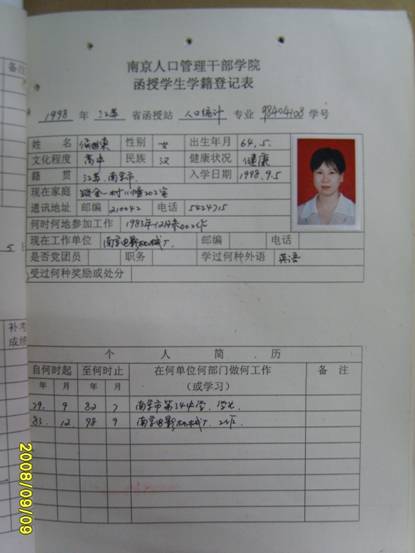 南京人口管理干部学院
函授学生学籍登记表
1998 年 江苏 省函授站 人口统计 专业 98404108 学号
姓名 性别 女 出生年月 64.5.
文化程度 高中 民族 汉 健康状况 健康
籍贯 江苏.南京市. 入学日期 1998.9.5
现在家庭
通讯地址 邮编 210042 电话 5424715
何时何地参加工作
现在工作单位 南京电影机械厂. 邮编 电话
是否党团员 职务 学过何种外语 英语
受过何种奖励或处分
个人简历
自何时起 至何时止 在何单位何部门做何工作 备注
年 月 年 月 (或学习)
79. 9 82 7 南京市第34中学.
83. 12 98 9 南京电影机械厂.
备
5
补考
成绩
2008/09/09